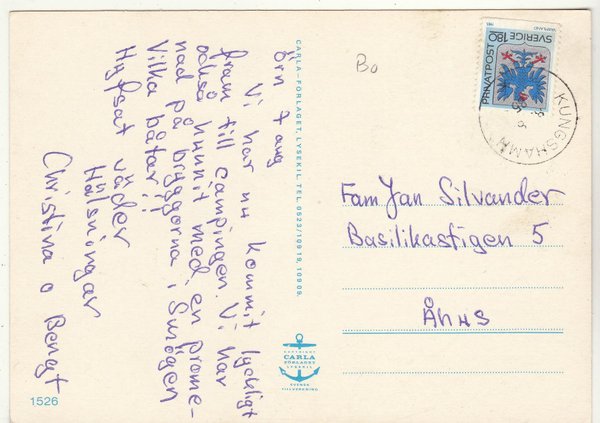 Örn tang
Vi har nu kommit lyckligt
fram till campingen. Vi har
också hunnit med en prome-
nad på bryggorna i Smögen
Vilka båtar!!
Hyfsat väder
Hälsningar
Christina o Bengt
CARLA-FÖRLAGET, LYSEKIL. TEL. 0523/10919, 10909.
Bo
SVERIGE 180
PRIVATPOST
KUNGSHAMN
Fam Jan Silvander
Basilikastigen 5
Åhus
COPYRIGHT
CARLA
FÖRLAGET
LYSEKIL
SVENSK
TILLVERKNING
1526